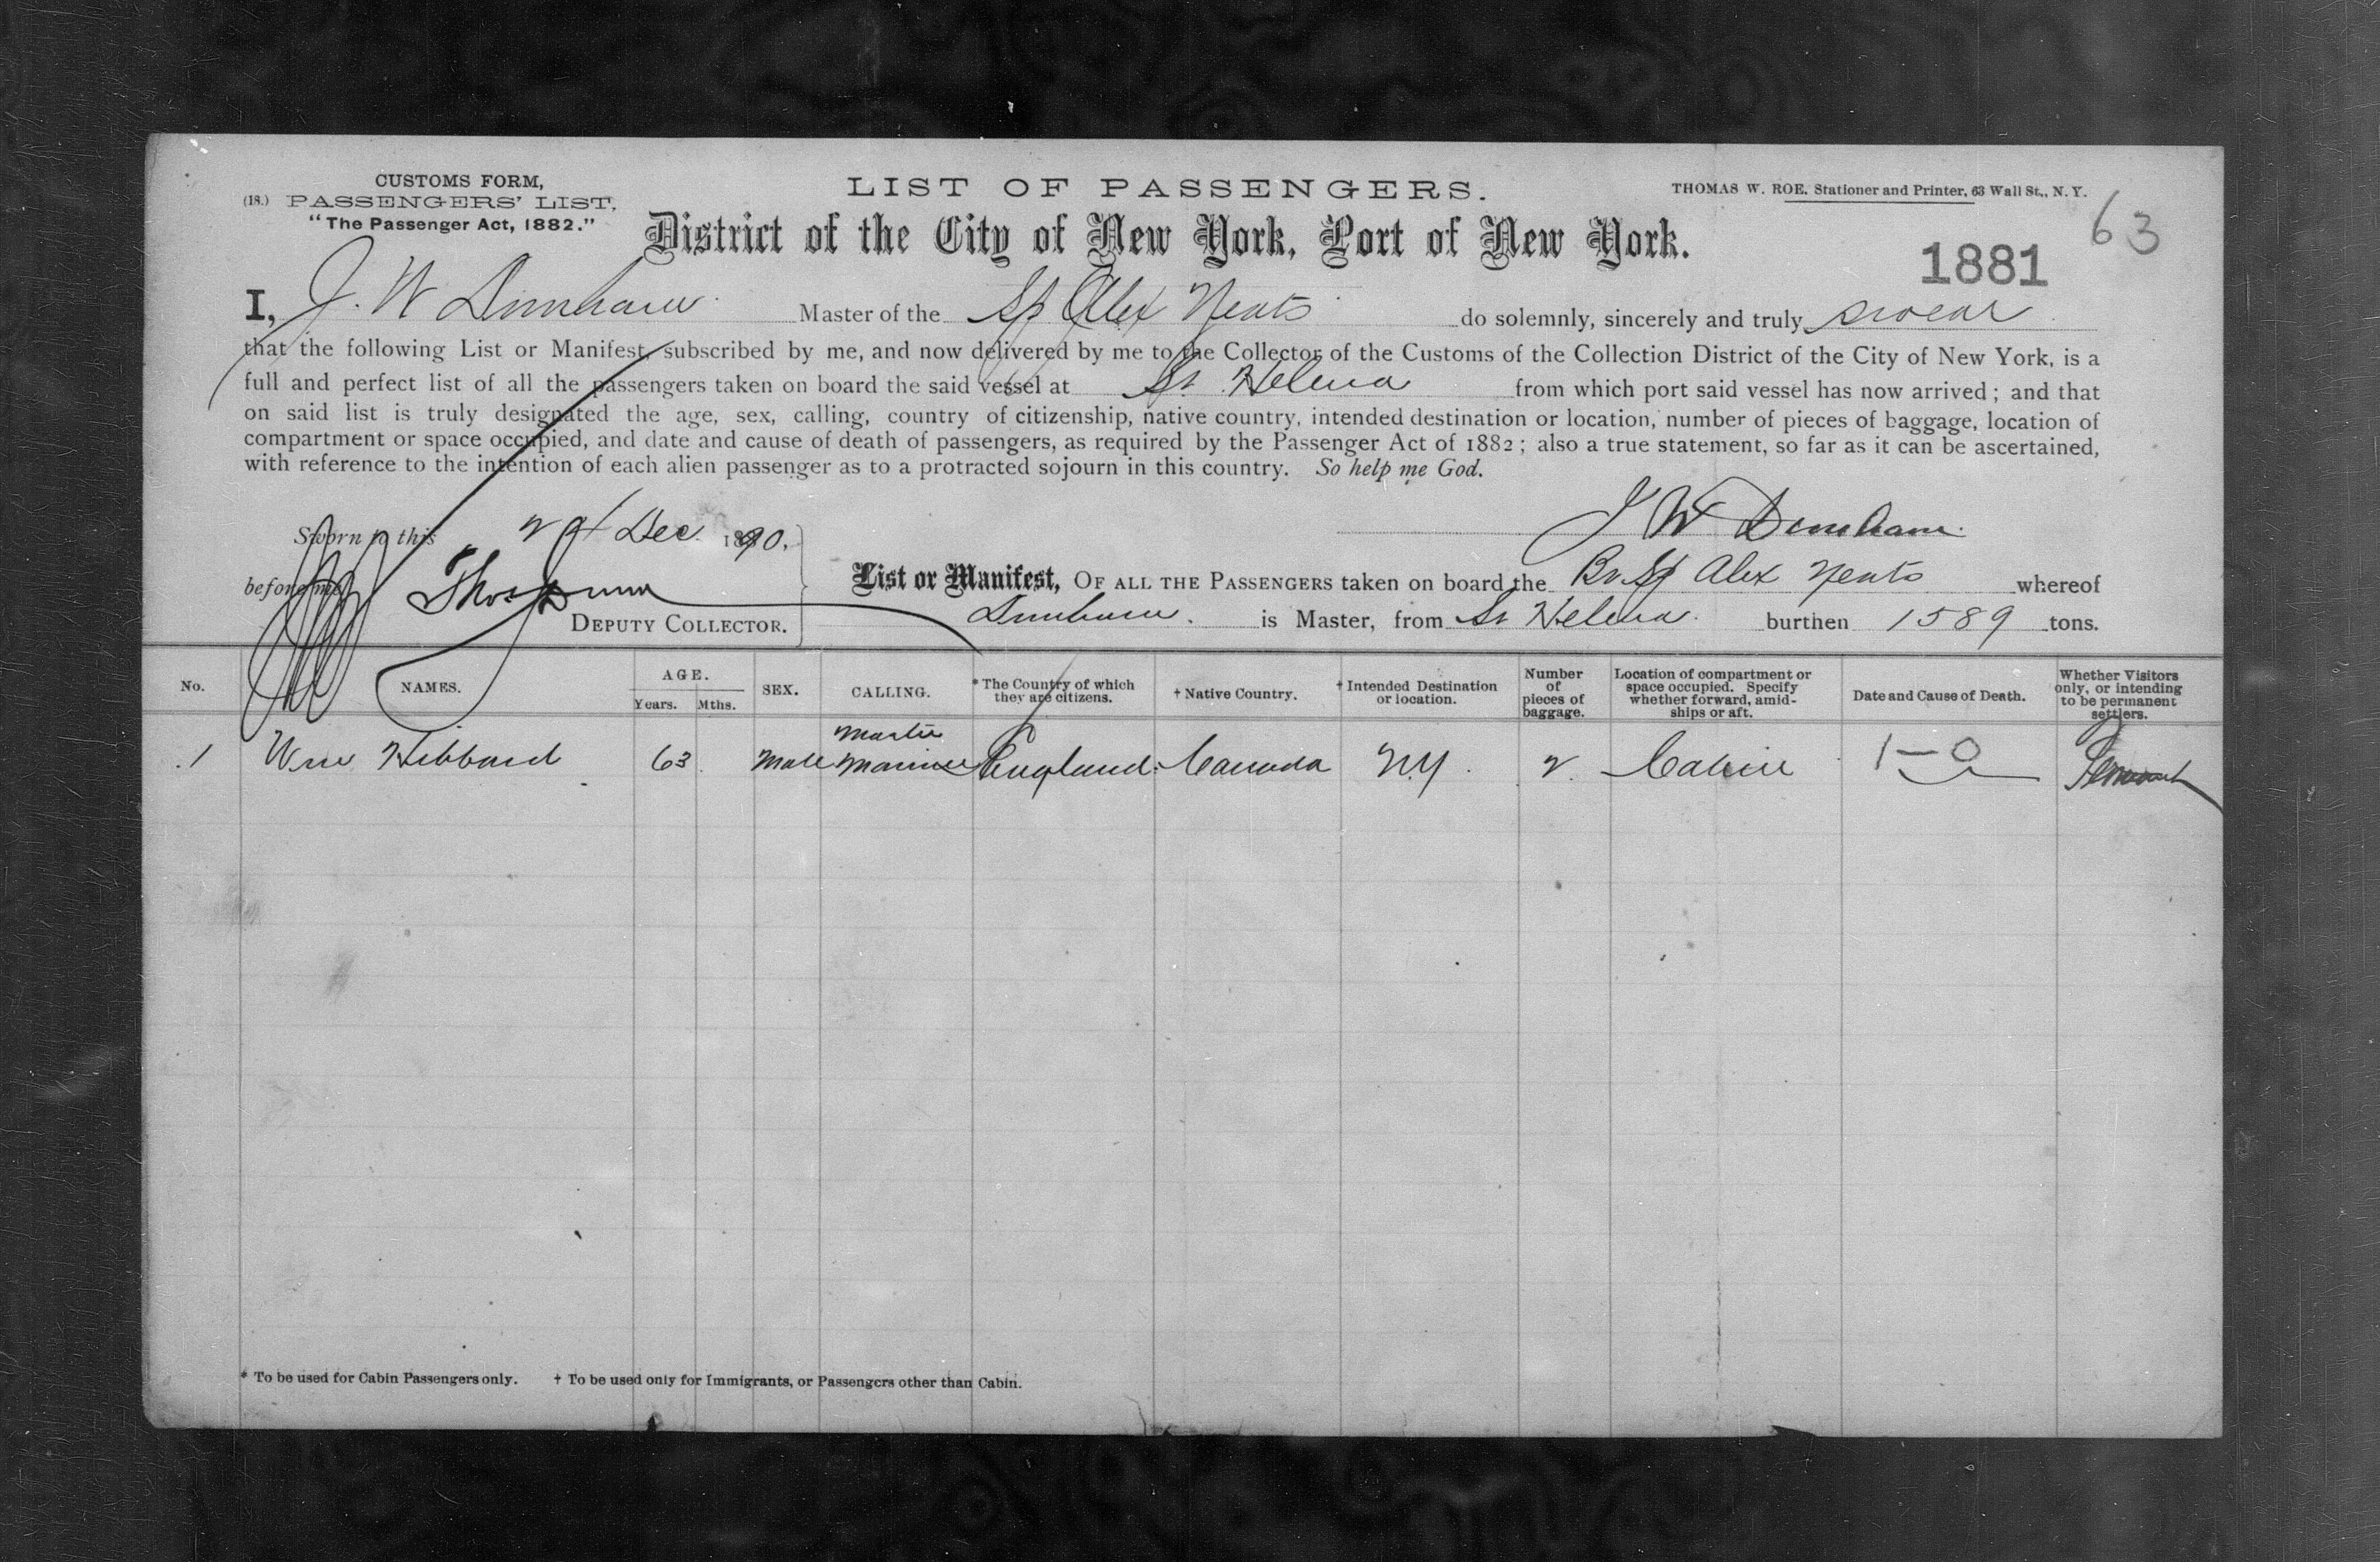 CUSTOMS FORM,
(18.) PASSENGERS' LIST,
"The Passenger Act, 1882."
LIST OF PASSENGERS.
THOMAS W. ROE, Stationer and Printer, 63 Wall St., N. Y.
63
District of the City of New York, Port of New York.
1881
I, J. W Dunham Master of the Sp Alex Yeats do solemnly, sincerely and truly swear
that the following List or Manifest, subscribed by me, and now delivered by me to the Collector of the Customs of the Collection District of the City of New York, is a
full and perfect list of all the passengers taken on board the said vessel at St. Helena from which port said vessel has now arrived; and that
on said list is truly designated the age, sex, calling, country of citizenship, native country, intended destination or location, number of pieces of baggage, location of
compartment or space occupied, and date and cause of death of passengers, as required by the Passenger Act of 1882; also a true statement, so far as it can be ascertained,
with reference to the intention of each alien passenger as to a protracted sojourn in this country. So help me God.
Sworn to this Dec 1890.
J W Dunham
before me Thos
DEPUTY COLLECTOR.
List or Manifest, OF ALL THE PASSENGERS taken on board the Br Sp Alex Yeats whereof
Dunham. is Master, from St Helena. burthen 1589 tons.
No. NAMES. AGE. Years. Mths. SEX. CALLING. * The Country of which they are citizens. † Native Country. † Intended Destination or location. Number of pieces of baggage. Location of compartment or space occupied. Specify whether forward, amidships or aft. Date and Cause of Death. Whether Visitors only, or intending to be permanent settlers.
1 Wm Hibbard 63 Male Master Mariner England Canada N.Y. 2 Cabin
* To be used for Cabin Passengers only. † To be used only for Immigrants, or Passengers other than Cabin.